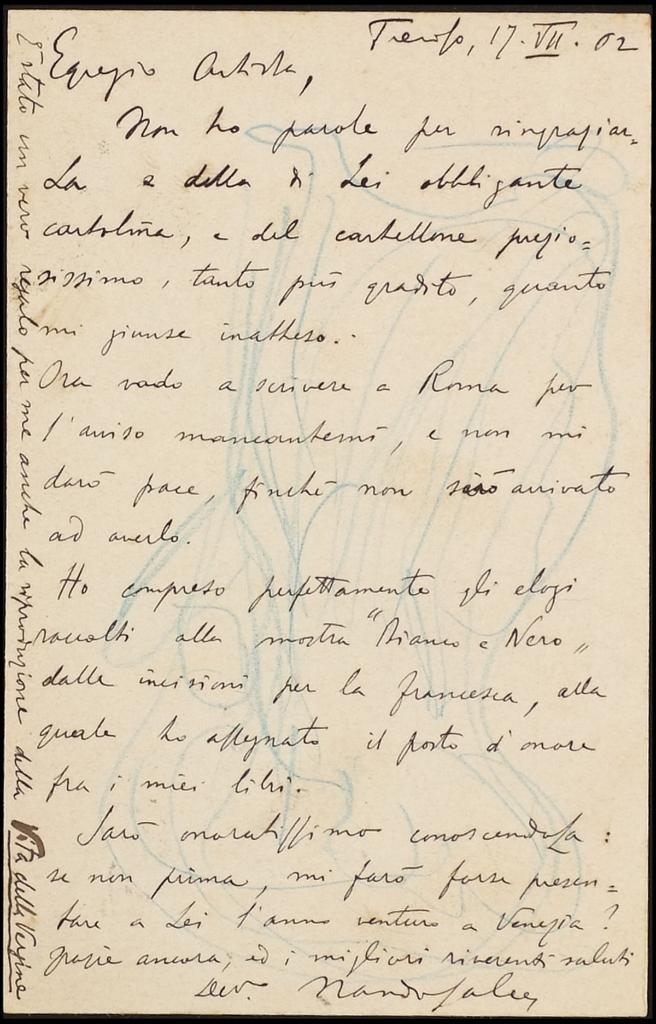 Treviso, 17. VII. 02
Egregio Artista,
Non ho parole per ringraziar=
La e della di Lei obbligante
cartolina, e del cartellone prezio=
sissimo, tanto più gradito, quanto
mi giunse inatteso..
Ora vado a scrivere a Roma per
l'avviso mancantemi, e non mi
darò pace, finchè non sarò arrivato
ad averlo.
Ho compreso perfettamente gli elogi
raccolti alla mostra "Bianco e Nero„
dalle incisioni per la francesca, alla
quale ho assegnato il posto d'onore
fra i miei libri.
Sarò onoratissimo conoscendola:
se non prima, mi farò forse presen=
tare a Lei l'anno venturo a Venezia?
grazie ancora, ed i migliori riverenti saluti
Dev.
È stato un vero regalo per me anche la riproduzione della Vita della Vergine